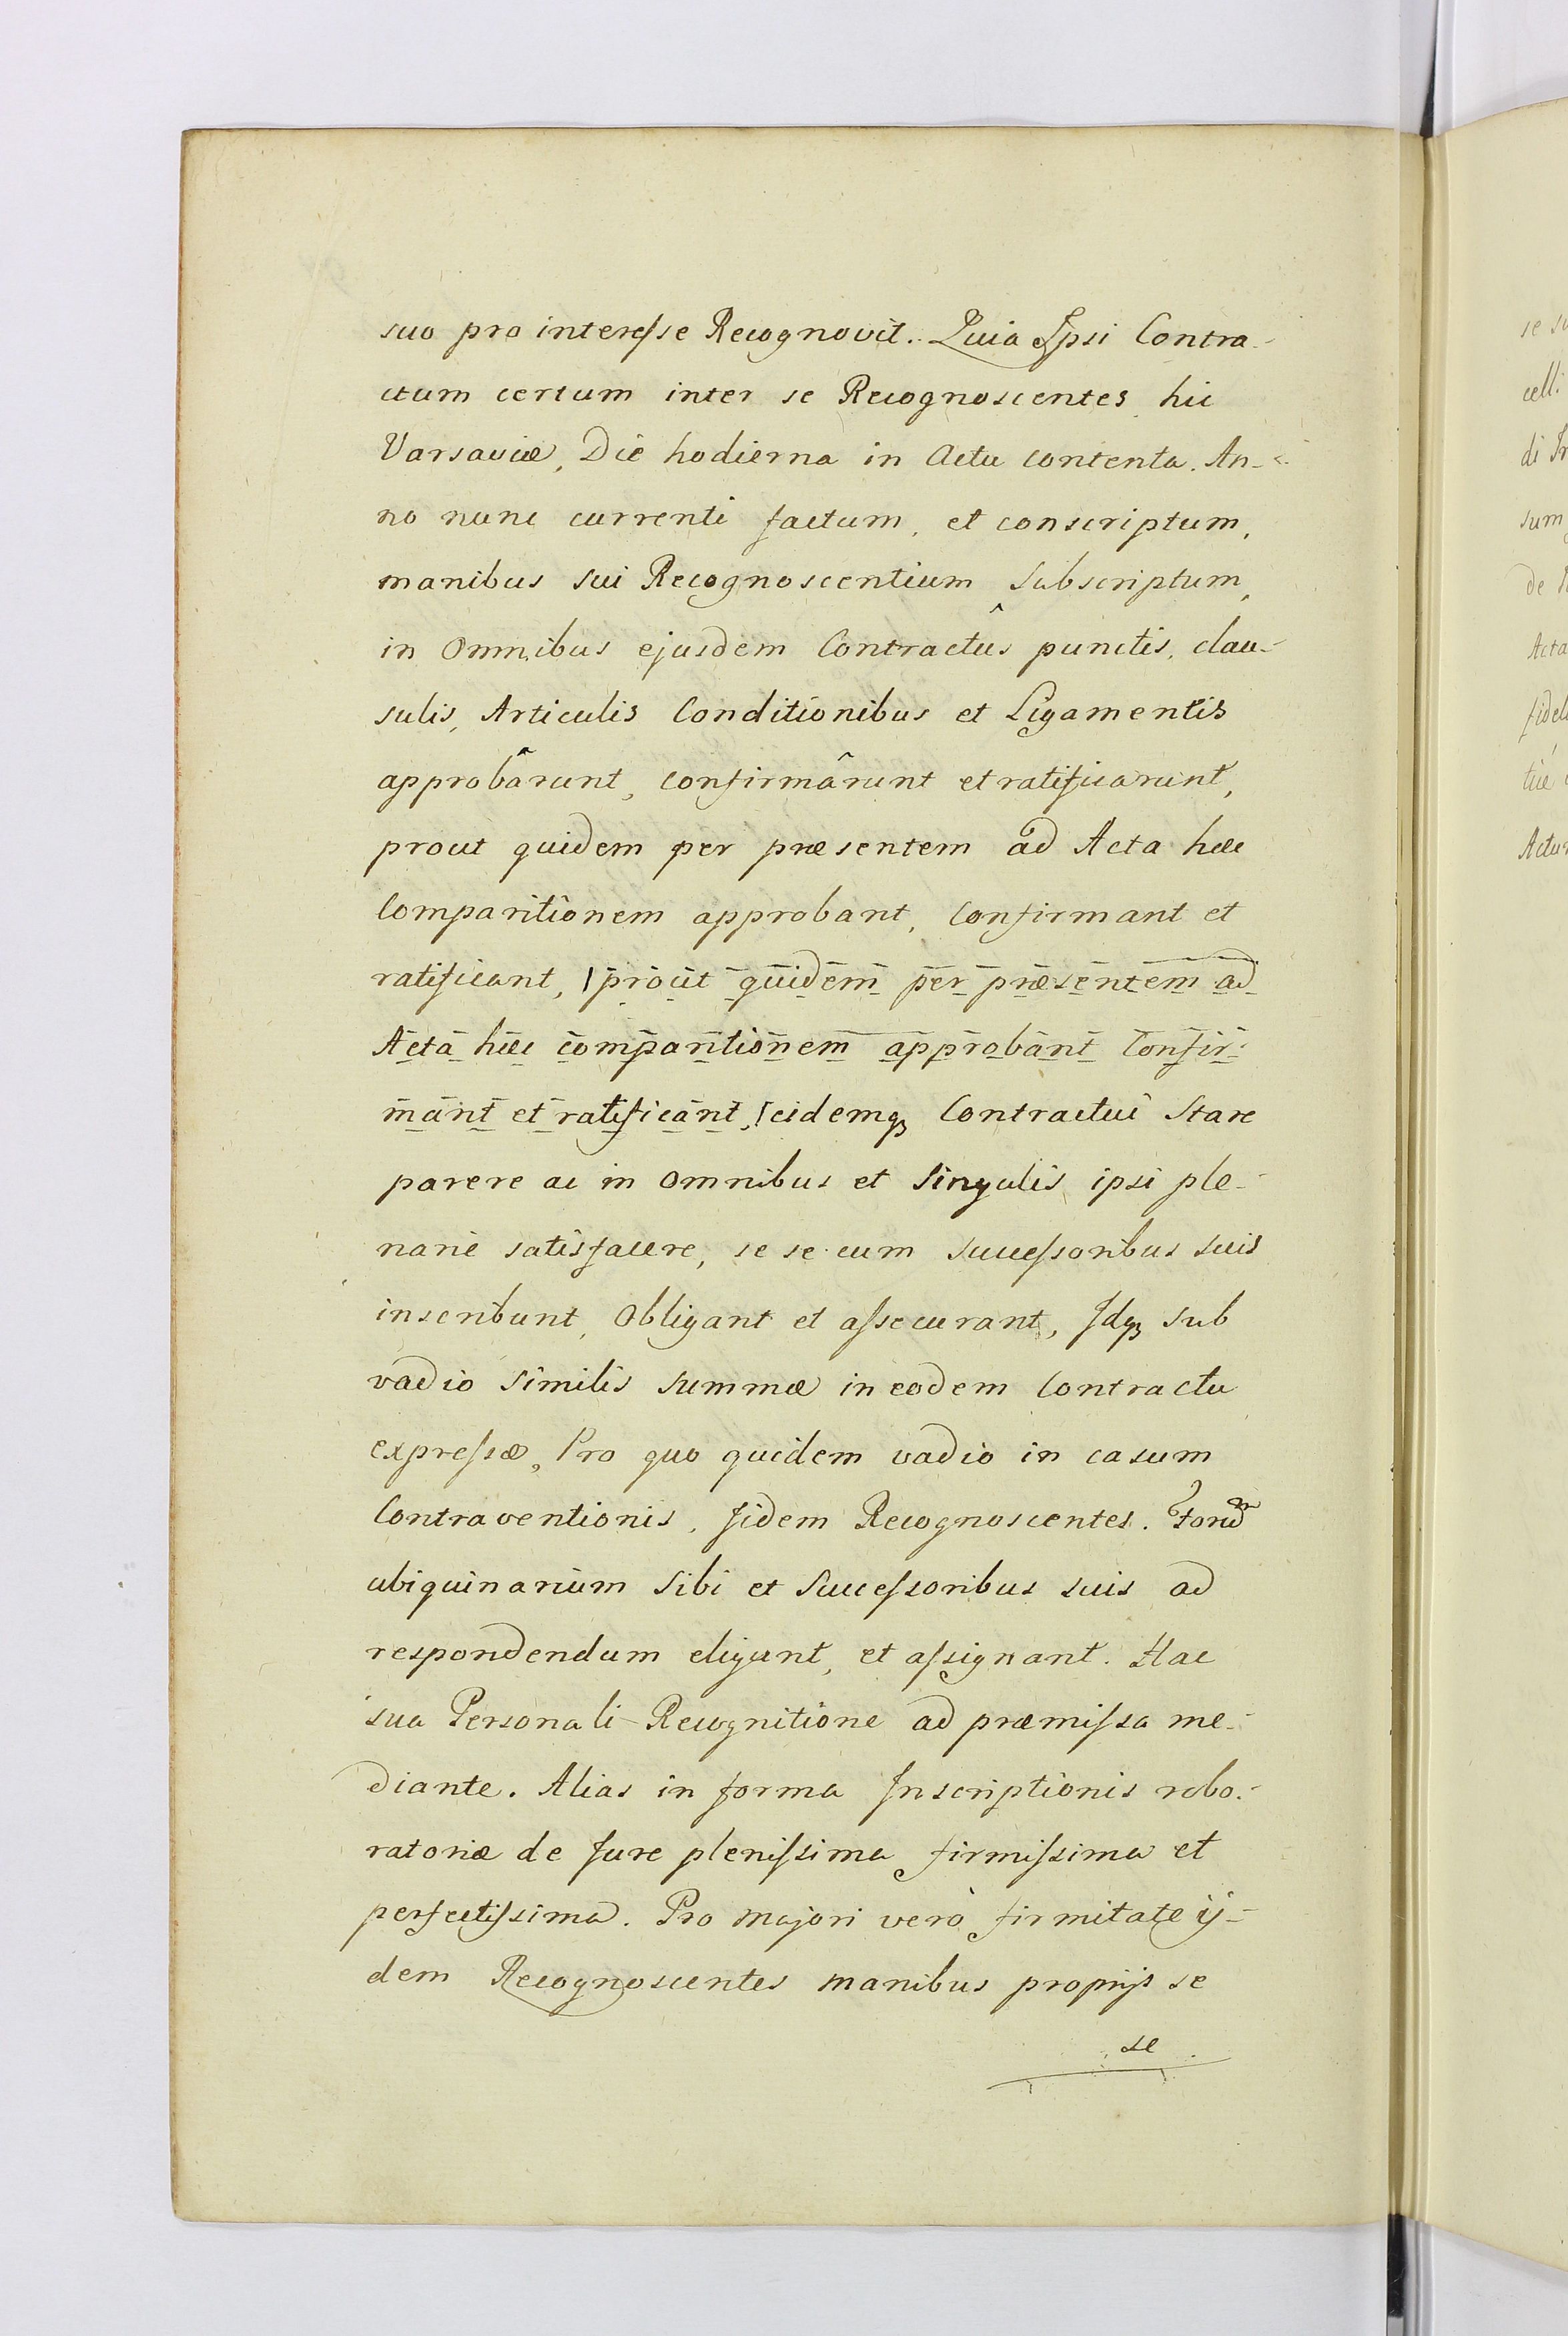 suo pro interesse Recognovit. Quia Ipsi Contra-
ctum certum inter se Recognoscentes hic
Varsaviæ, Die hodierna in Actu contenta. An-
no nunc currenti factum, et conscriptum,
manibus sui Recognoscentium subscriptum,
in Omnibus ejusdem Contractûs punctis, clau-
sulis, Articulis Conditionibus et Ligamentis
approbârunt, confirmârunt et ratificarunt,
prout quidem per præsentem ad Acta hæc
Comparitionem approbant, Confirmant et
ratificant, prout quidem per præsentem ad
Acta hæc comparitionem approbant Confir-
mant et ratificant, eidemq3 Contractui Stare
parere ac in Omnibus et Singulis ipsi ple-
narie satisfacere, se se cum successoribus suis
inscribunt, Obligant et assecurant, Idq3 sub
vadio similis summæ in eodem Contractu
expressæ, Pro quo quidem vadio in casum
Contraventionis, Iidem Recognoscentes.
ubiquinarium Sibi et Successoribus suis ad
respondendum eligunt, et assignant. Hac
sua Personali Recognitione ad præmissa me-
diante. Alias in forma Inscriptionis robo-
ratoriæ de Jure plenissima firmissima et
perfectissima. Pro majori verò firmitate ij-
dem Recognoscentes manibus proprijs se
se
se
celli
di
sum
de
Acta
fidel
tiæ
Actu